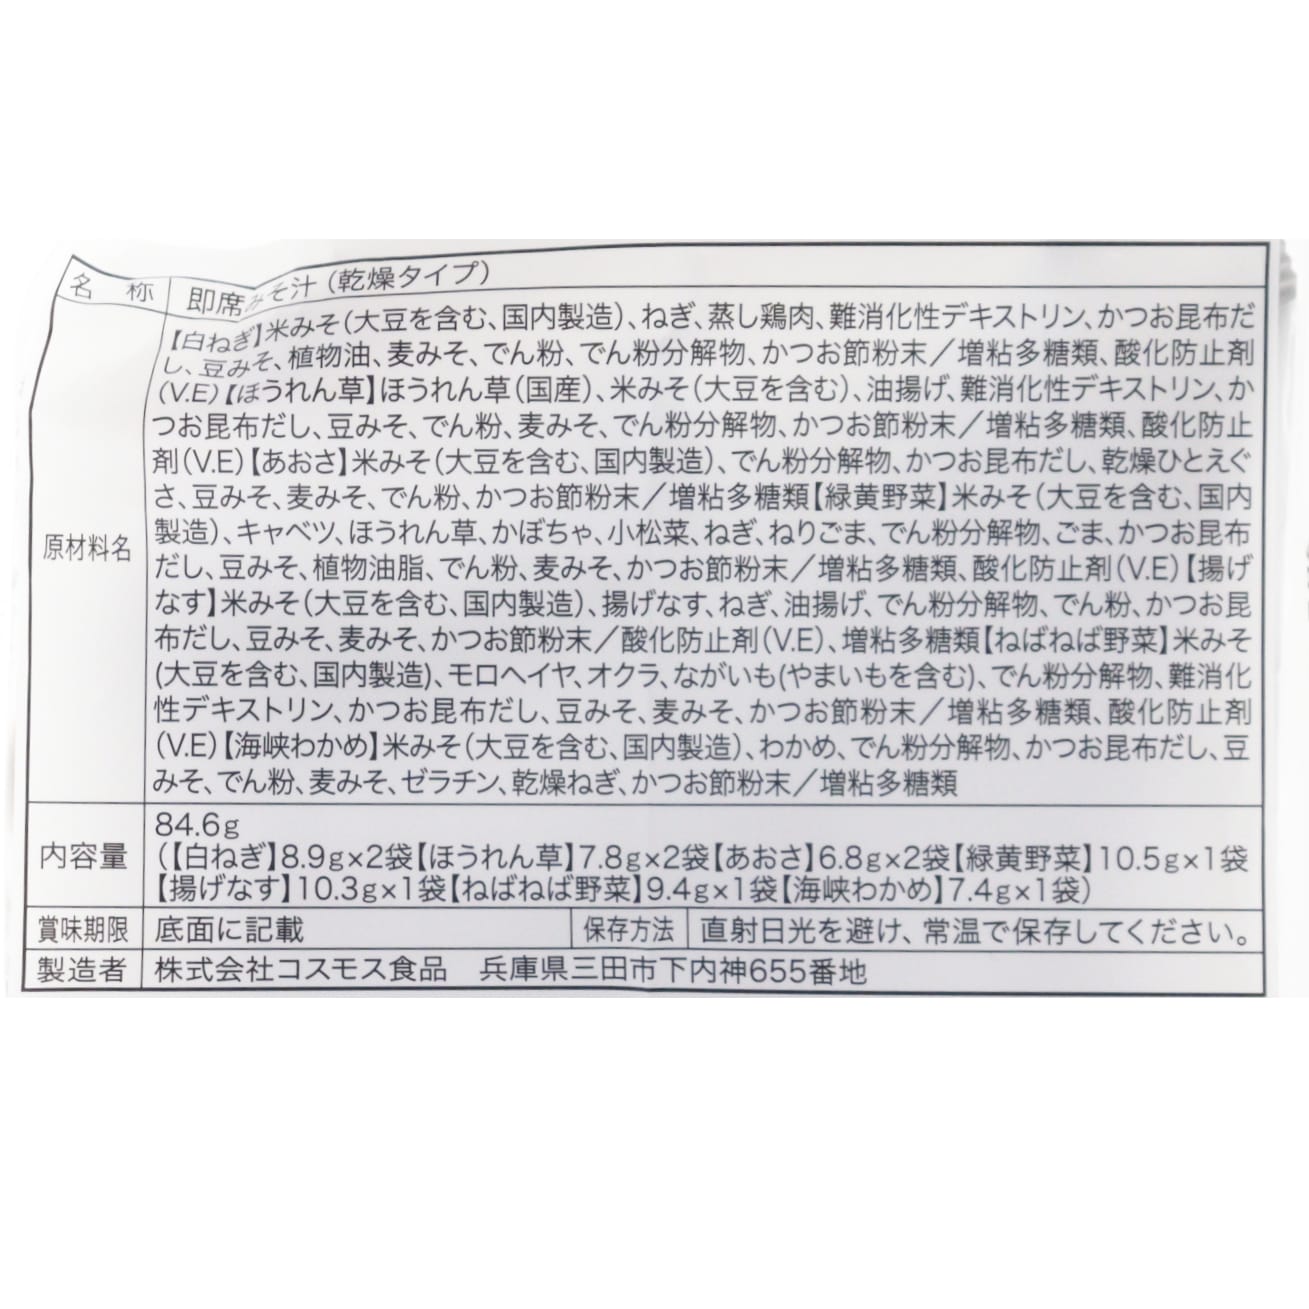 名 称 即席みそ汁(乾燥タイプ)
【白ねぎ】米みそ(大豆を含む、国内製造)、ねぎ、蒸し鶏肉、難消化性デキストリン、かつお昆布だ
し、豆みそ、植物油、麦みそ、でん粉、でん粉分解物、かつお節粉末/増粘多糖類、酸化防止剤
(V.E)【ほうれん草】ほうれん草(国産)、米みそ(大豆を含む)、油揚げ、難消化性デキストリン、か
つお昆布だし、豆みそ、でん粉、麦みそ、でん粉分解物、かつお節粉末/増粘多糖類、酸化防止
剤(V.E)【あおさ】米みそ(大豆を含む、国内製造)、でん粉分解物、かつお昆布だし、乾燥ひとえぐ
さ、豆みそ、麦みそ、でん粉、かつお節粉末/増粘多糖類【緑黄野菜】米みそ(大豆を含む、国内
製造)、キャベツ、ほうれん草、かぼちゃ、小松菜、ねぎ、ねりごま、でん粉分解物、ごま、かつお昆布
原材料名
だし、豆みそ、植物油脂、でん粉、麦みそ、かつお節粉末/増粘多糖類、酸化防止剤(V.E)【揚げ
なす】米みそ(大豆を含む、国内製造)、揚げなす、ねぎ、油揚げ、でん粉分解物、でん粉、かつお昆
布だし、豆みそ、麦みそ、かつお節粉末/酸化防止剤(V.E)、増粘多糖類【ねばねば野菜】米みそ
(大豆を含む、国内製造)、モロヘイヤ、オクラ、ながいも(やまいもを含む)、でん粉分解物、難消化
性デキストリン、かつお昆布だし、豆みそ、麦みそ、かつお節粉末/増粘多糖類、酸化防止剤
(V.E)【海峡わかめ】米みそ(大豆を含む、国内製造)、わかめ、でん粉分解物、かつお昆布だし、豆
みそ、でん粉、麦みそ、ゼラチン、乾燥ねぎ、かつお節粉末/増粘多糖類
内容量
84.6g
(【白ねぎ】8.9g×2袋【ほうれん草】7.8g×2袋【あおさ】6.8g×2袋【緑黄野菜】10.5g×1袋
【揚げなす】10.3g×1袋【ねばねば野菜】9.4g×1袋【海峡わかめ】7.4g×1袋)
賞味期限 底面に記載 保存方法 直射日光を避け、常温で保存してください。
製造者 株式会社コスモス食品 兵庫県三田市下内神655番地